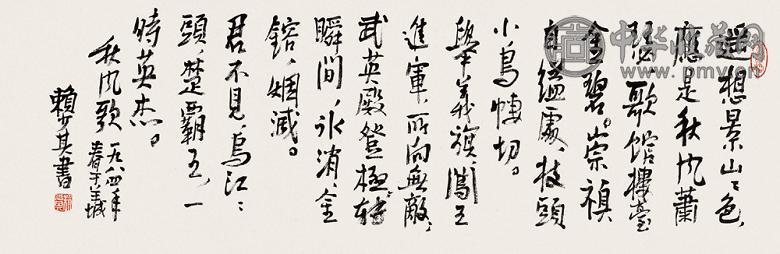 遥想景山〻色,
應是秋风蕭
瑟,歌館樓臺
金碧。崇禎
自縊處,枝頭
小鳥悽切。
舉義旗,闖王
進軍,所向無敵,
武英殿登極,轉
瞬間,冰消,金
鎔,烟滅。
君不見,烏江〻
頭,楚霸王,一
時英杰。
秋风歌 一九八四年
春于羊城
賴少其書